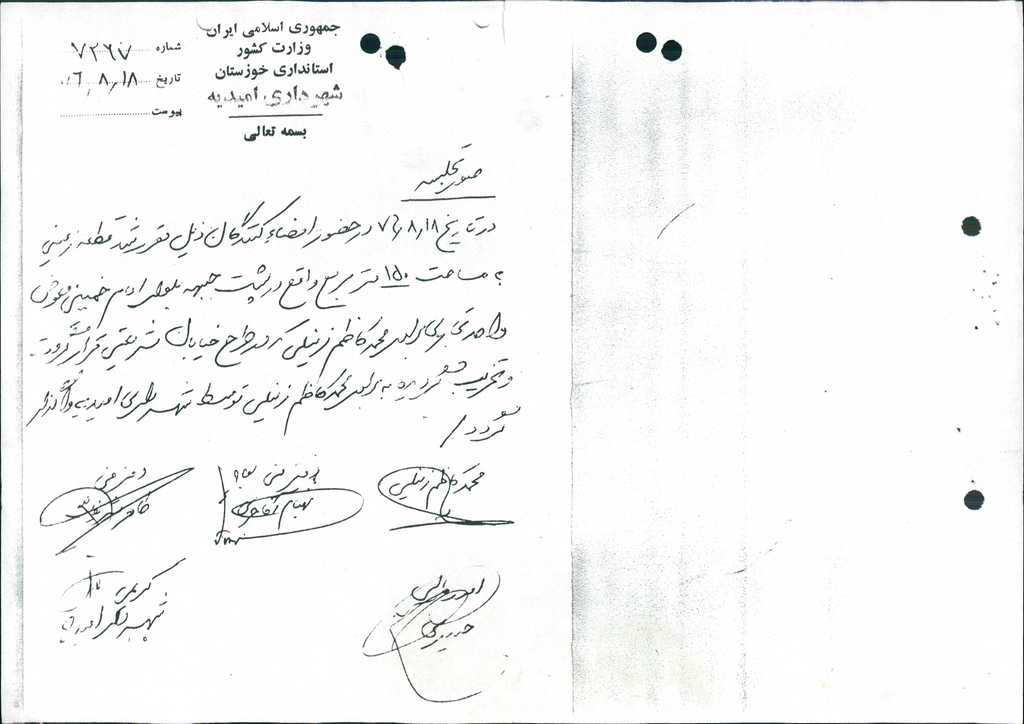 جمهوری اسلامی ایران
وزارت کشور
استانداری خوزستان
شهرداری امیدیه
شماره ۷۲۶۷
تاریخ ۷۶٫۸٫۱۸
پیوست
بسمه تعالی
صورتجلسه
در تاریخ ۷۶٫۸٫۱۸ در حضور امضاء کنندگان ذیل مقرر شد قطعه زمینی
به مساحت ۱۵۰ متر مربع واقع در پشت جبهه بلوار امام خمینی معوض
واحد تجاری برادر محمد کاظم زنیلی که در طرح خیابان شریعتی قرار گرفته
و تخریب گردیده به برادر محمد کاظم زنیلی توسط شهرداری امیدیه واگذار
گردد /
محمد کاظم زنیلی
دفتر فنی
کریمی
شهردار امیدیه
امور مالی